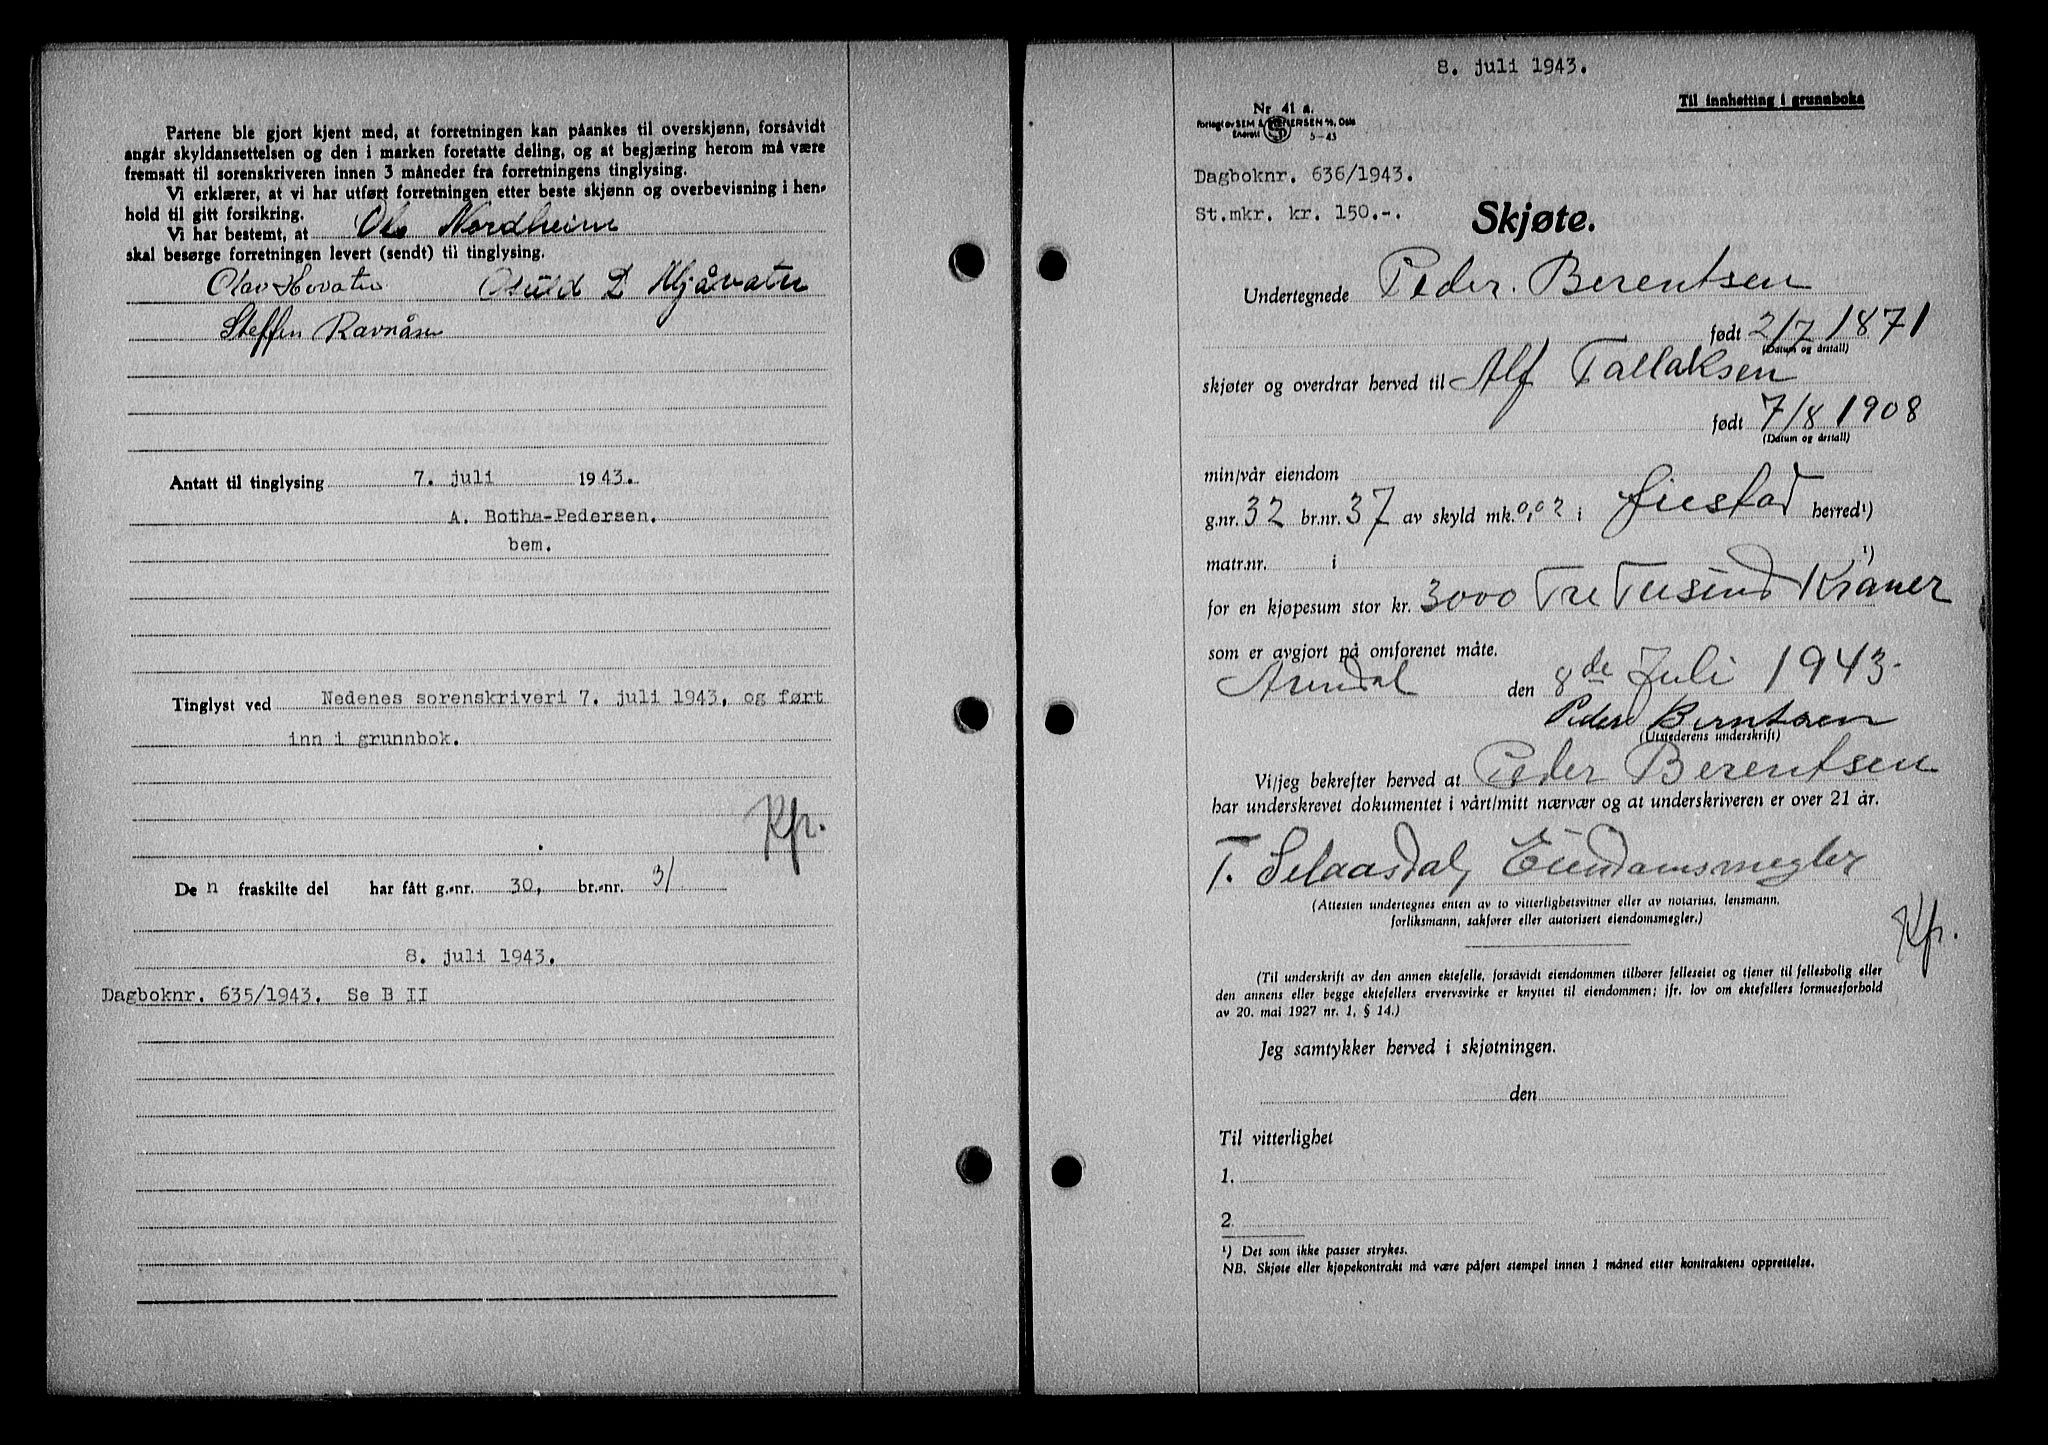 Partene ble gjort kjent med, at forretningen kan påankes til overskjønn, forsåvidt
angår skyldansettelsen og den i marken foretatte deling, og at begjæring herom må være
fremsatt til sorenskriveren innen 3 måneder fra forretningens tinglysing.
Vi erklærer, at vi har utført forretningen etter beste skjønn og overbevisning i hen-
hold til gitt forsikring.
Vi har bestemt, at Ole Nordheim
skal besørge forretningen levert (sendt) til tinglysing.
Olav Hovatn Osuld D Mjåvatn
Steffen Ravnåsen
Antatt til tinglysing 7. juli 1943.
A. Botha-Pedersen.
bem.
Tinglyst ved Nedenes sorenskriveri 7. juli 1943, og ført
inn i grunnbok.
Kfr.
Den fraskilte del har fått g.-nr. 30, br.-nr. 31
8. juli 1943.
Dagboknr. 635/1943. Se B II
8. juli 1943.
Til innhefting i grunnboka
Nr 41 a.
Forlagt av SEM & STENERSEN A/S, Oslo
Enerett 5-43
Dagboknr. 636/1943.
St.mkr. kr. 150.-.
Skjøte.
Undertegnede Peder. Berentsen
født 2/7 1871
(Datum og årstall)
skjøter og overdrar herved til Alf Tallaksen
født 7/8 1908
(Datum og årstall)
min/vår eiendom
g.nr. 32 br.nr. 37 av skyld mk. 0,02 i Øiestad herred¹)
matr.nr. i ¹)
for en kjøpesum stor kr. 3000 Tre Tusind Kroner
som er avgjort på omforenet måte.
Arendal den 8de Juli 1943.
Peder Berntsen
(Utstederens underskrift)
Vi/jeg bekrefter herved at Peder Berentsen
har underskrevet dokumentet i vårt/mitt nærvær og at underskriveren er over 21 år.
T. Selaasdal, Eiendomsmegler
(Attesten undertegnes enten av to vitterlighetsvitner eller av notarius, lensmann,
forliksmann, sakfører eller autorisert eiendomsmegler.)
Kfr.
(Til underskrift av den annen ektefelle, forsåvidt eiendommen tilhører felleseiet og tjener til fellesbolig eller
den annens eller begge ektefellers ervervsvirke er knyttet til eiendommen; jfr. lov om ektefellers formuesforhold
av 20. mai 1927 nr. 1, § 14.)
Jeg samtykker herved i skjøtningen.
den
Til vitterlighet
1.
2.
¹) Det som ikke passer strykes.
NB. Skjøte eller kjøpekontrakt må være påført stempel innen 1 måned etter kontraktens opprettelse.